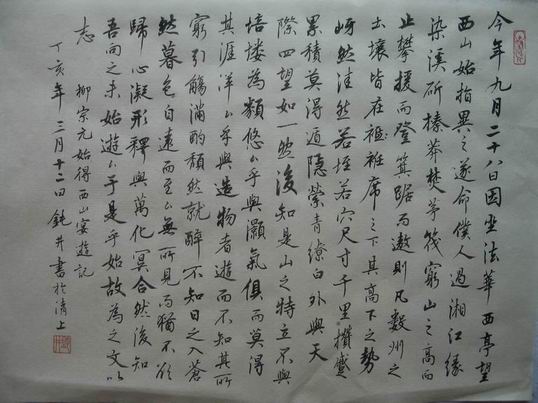 今年九月二十八日因坐法華西亭望
西山始指異之遂命僕人過湘江緣
染溪斫榛莽焚茅茷窮山之高而
止攀援而登箕踞而遨則凡數州之
土壤皆在衽席之下其高下之勢
岈然洼然若垤若穴尺寸千里攢蹙
累積莫得遁隱縈青繚白外與天
際四望如一然後知是山之特立不與
培塿為類悠々乎與灝氣俱而莫得
其涯洋々乎與造物者遊而不知其所
窮引觴滿酌頹然就醉不知日之入蒼
然暮色自遠而至々無所見而猶不欲
歸心凝形釋與萬化冥合然後知
吾向之未始遊々于是乎始故為之文以
志 柳宗元始得西山宴遊記
丁亥年三月十二日 井書於清上